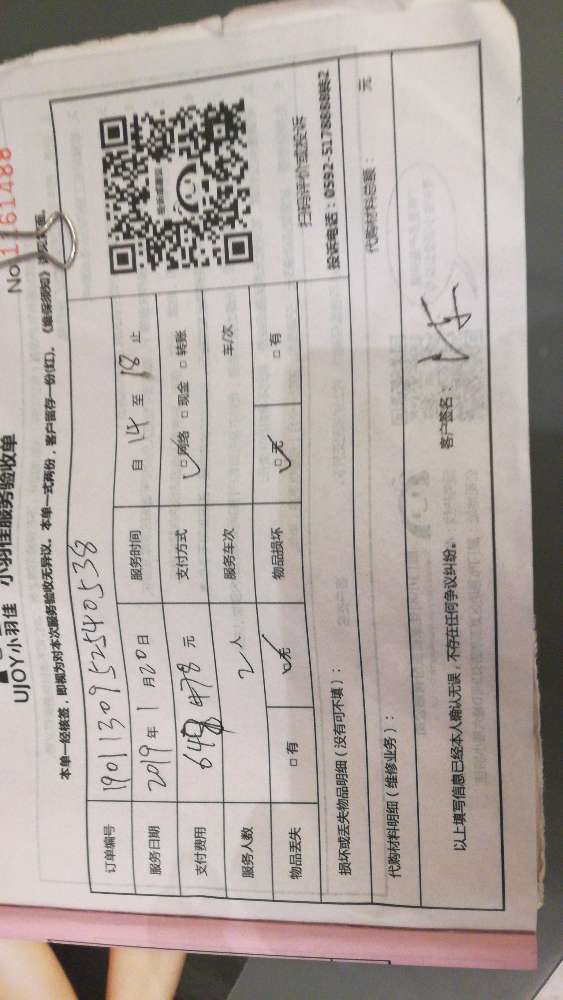 No 1161488
UJOY小羽佳 小羽佳服务验收单
本单一经核签，即视为对本次服务验收无异议。本单一式两份，客户留存一份(红)。《维保须知》
订单编号 190113095254 0538
服务日期 2019年1月20日 服务时间 自 14 至 18 止
支付费用 648 478 元 支付方式 ☑网络 □现金 □转账
服务人数 2人 服务车次 车/次
物品丢失 □有 ☑无 物品损坏 ☑无 □有
扫码评价或投诉
投诉电话：0592-5178888转2
损坏或丢失物品明细（没有可不填）：
代购材料明细（维修业务）： 代购材料总额： 元
以上填写信息已经本人确认无误，不存在任何争议纠纷。 客户签名：